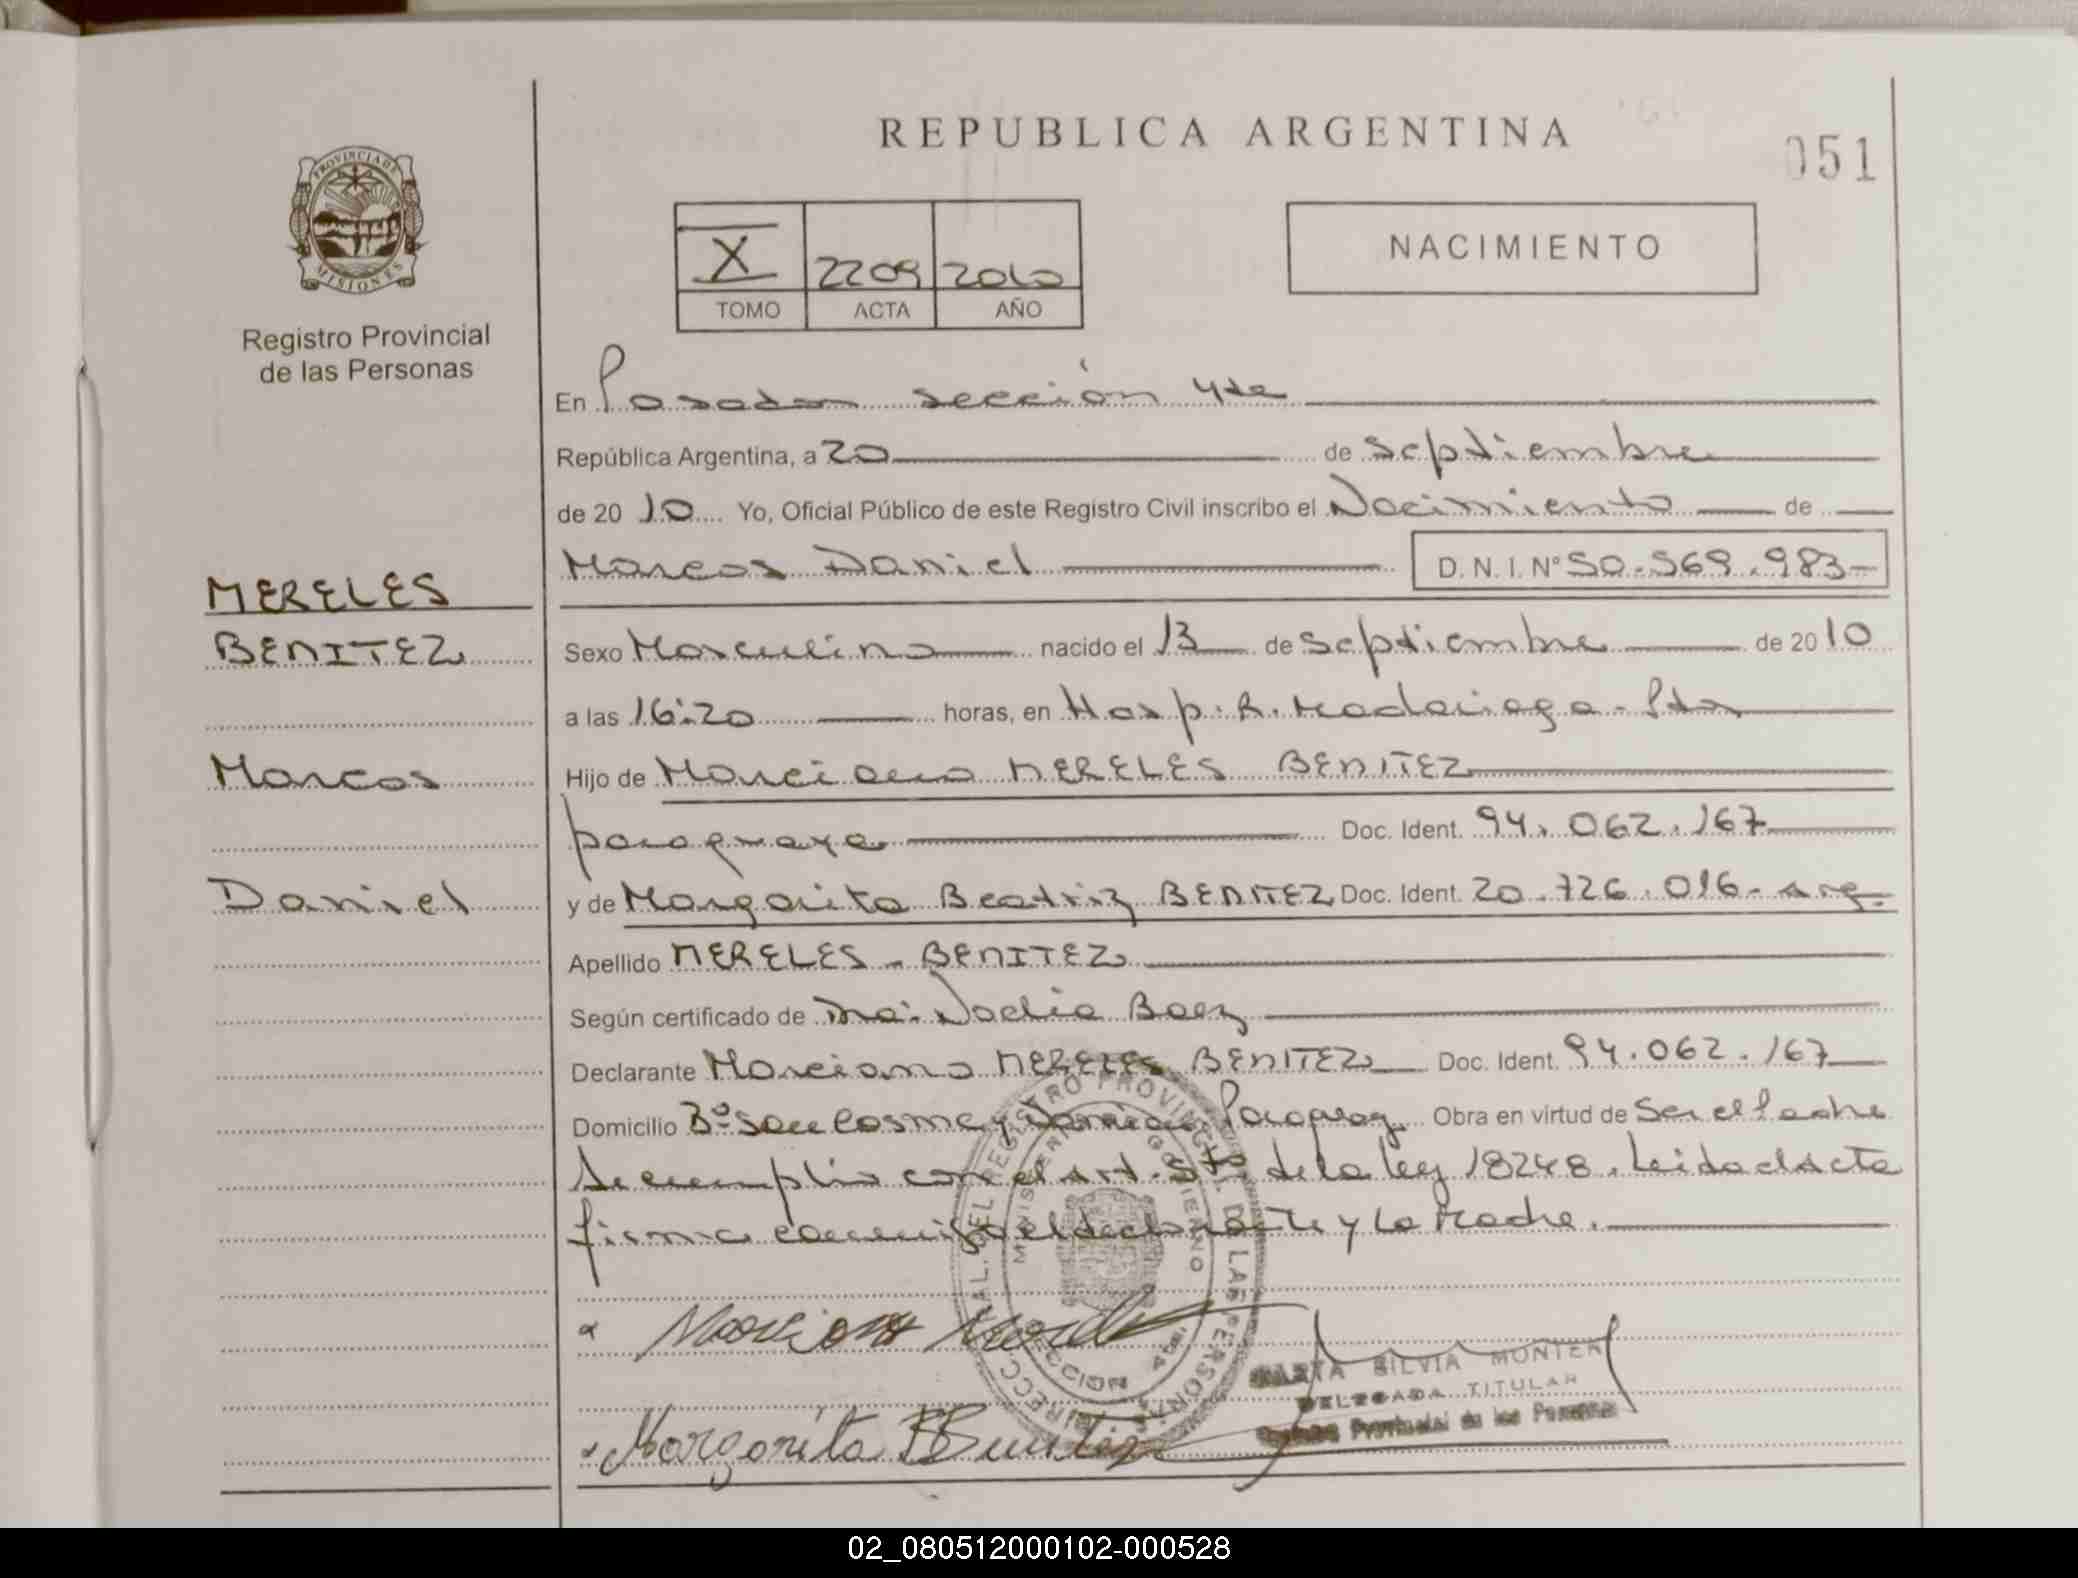 REPUBLICA ARGENTINA
051
PROVINCIA DE
MISIONES
Registro Provincial
de las Personas
X 2209 2010
TOMO ACTA AÑO
NACIMIENTO
En Posadas sección 4ta
República Argentina, a 20 de septiembre
de 20 10 Yo, Oficial Público de este Registro Civil inscribo el Nacimiento de
Marcos Daniel D.N.I. N° 50.569.983-
MERELES
BENITEZ
Marcos
Daniel
Sexo Masculino nacido el 13 de septiembre de 20 10
a las 16:20 horas, en Hosp. R. Madariaga - Pdas
Hijo de Marciano MERELES BENITEZ
paraguaya Doc. Ident. 94.062.167
y de Margarita Beatriz BENITEZ Doc. Ident. 20.726.016- arg.
Apellido MERELES - BENITEZ
Según certificado de Dra. Noelia Baez
Declarante Marciano MERELES BENITEZ Doc. Ident. 94.062.167
Domicilio B° San Cosme y Damian Paraguay Obra en virtud de Ser el Padre
Se cumplio con el Art. de la ley 18248. Leida el Acta
firma conmigo el declarante y La Madre.
Marciano
Margarita B Benitez
SILVIA MONTER
DELEGADA TITULAR
Provincial de las Personas
02_080512000102-000528